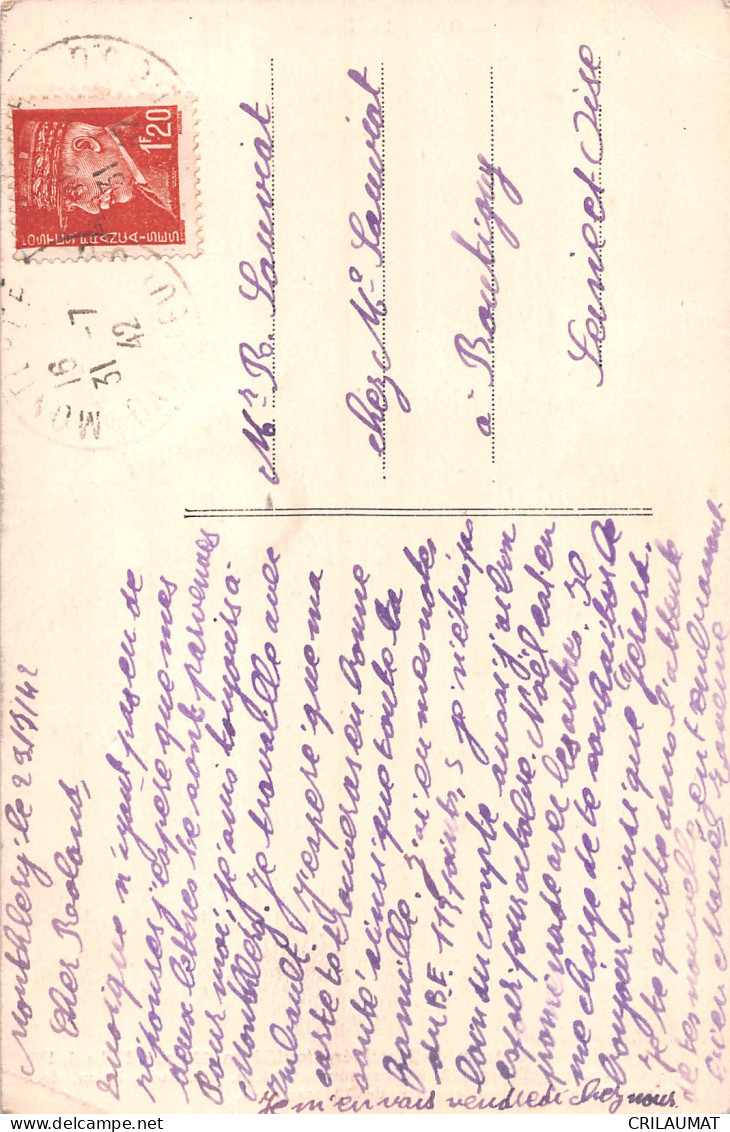 Montlhéry le 29/7/42
Cher Roland,
Quoique n'ayant pas eu de
réponses j'espère que mes
deux lettres te sont parvenues
Pour moi, je suis toujours à
Montlhéry. Je travaille avec
Imbault. J'espère que ma
carte te trouveras en bonne
santé ainsi que toute ta
famille. J'ai eu mes notes
du B.E. 119 points, 5 je n'étais pas
loin du compte aussi j'ai bon
espoir pour octobre. Noël est en
promenade avec les autres. Il
me charge de te souhaiter le
bonjour ainsi que Gérard.
Je te quitte dans l'attente
de tes nouvelle en t'embrassant
bien
Je m'en vais vendredi chez nous.
Mr R. Sauviat
chez Me Sauviat
à Boutigny
Seine et Oise
1F20
POSTES FRANÇAISES
MONTLHERY
16
31 -7
42
CRILAUMAT